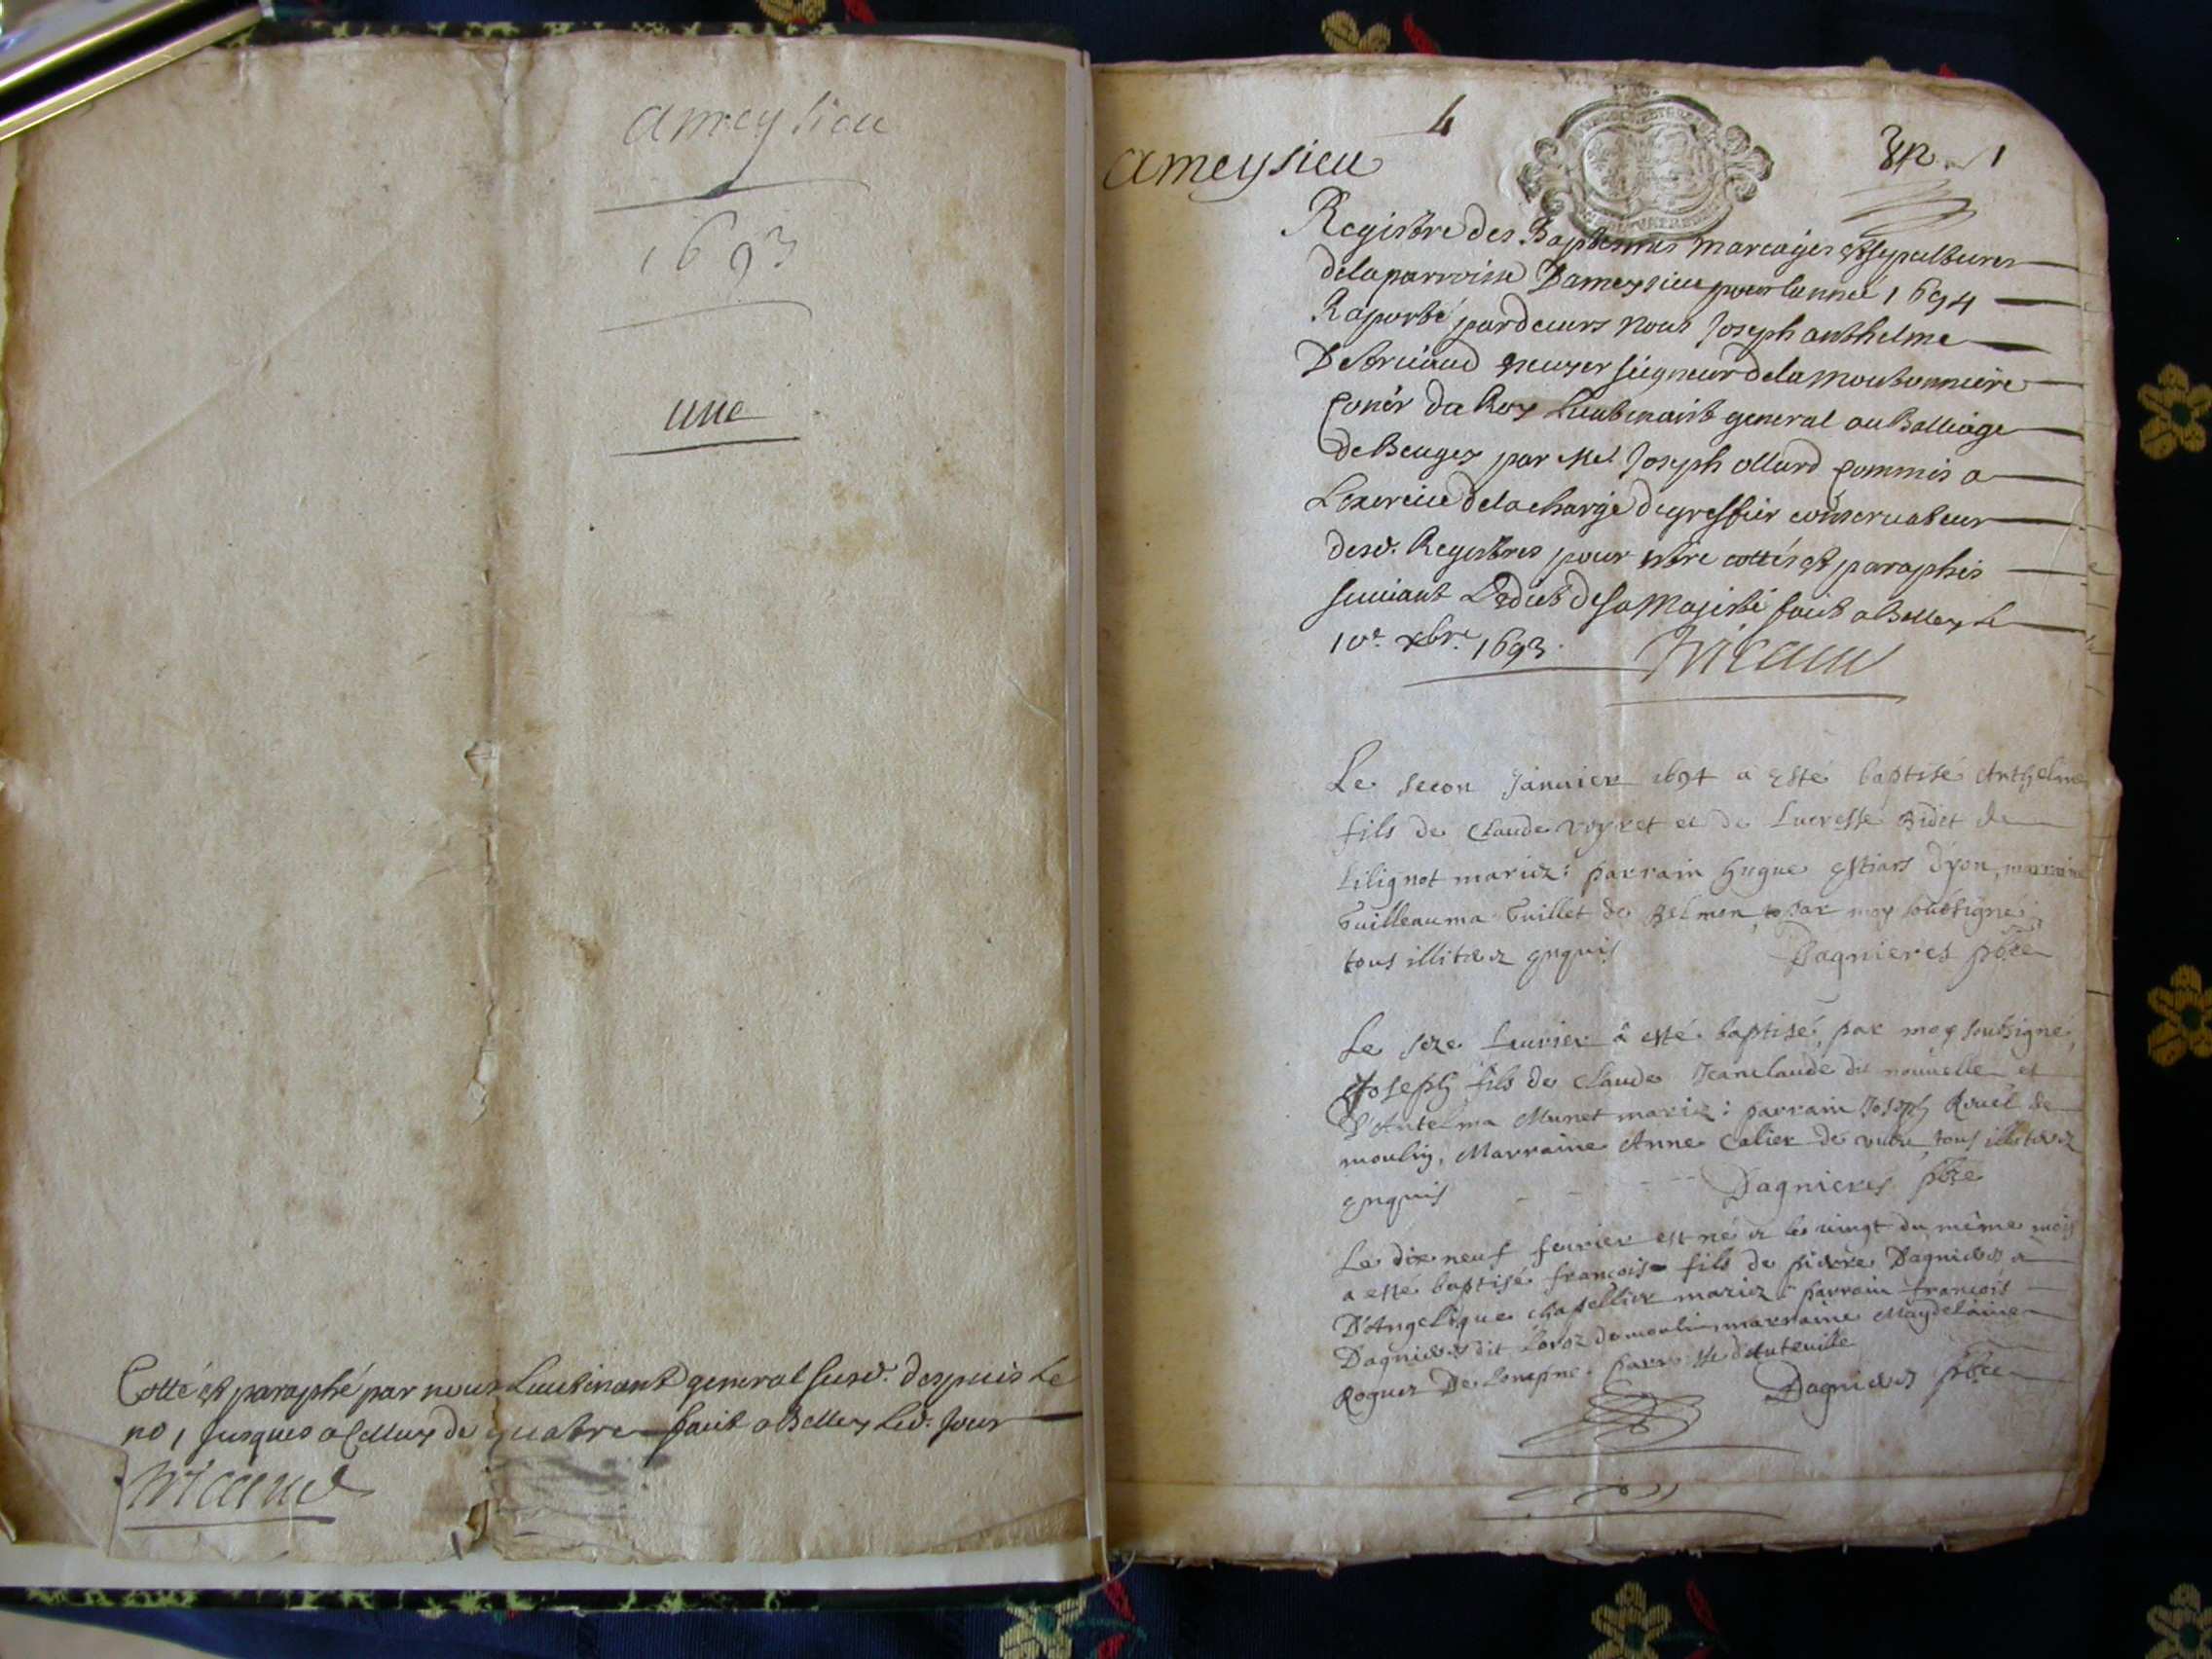 ameysieu
1693
une
Cotté et paraphé par nous Lieutenant general susd. despuis le
no 1 jusques a Celluy de quatre fait a Belley led. jour
4
ameysieu
1
Registre des Baptemes mariages et sepultures
de la parroisse Dameysieu pour lannée 1694
Raporté pardeuers nous Joseph anthelme
escuyer seigneur de la
Coner du Roy Lieutenant general au Balliage
de Beugey par Me Joseph ollard Commis a
Lexercice de la charge de greffier conseruateur
desd. Registres pour estre cottés et paraphés
suiuant Ledict de sa Majesté fait a Belley le
10e xbre 1693.
Le secon Januier 1694 a esté baptisé Anthelme
fils de Claude voyret et de Lucresse Bidet de
Lilignot mariez: parrain hugue d'yon, marraine
Guilleauma Guillet de Belmon, par moy soubsigné
tous illiterez enquis Dagnieres pbre
Le seze feurier a esté baptisé, par moy soubsigné,
Joseph fils de Claude Jeanclaude dit nouuelle et
D'Antelma Munet mariez: parrain Joseph de
moulin, Marraine Anne Calier de tous illiterez
enquis Dagnieres pbre
Le dix neuf feurier est né et le vingt du même mois
a esté baptisé françois fils de pierre Dagnieres et
D'Angelique Chapellier mariez: parrain françois
Dagnieres dit du moulin marraine Magdelaine
Roguet De Lompne. parroisse d'Auteuille
Dagnieres pbre